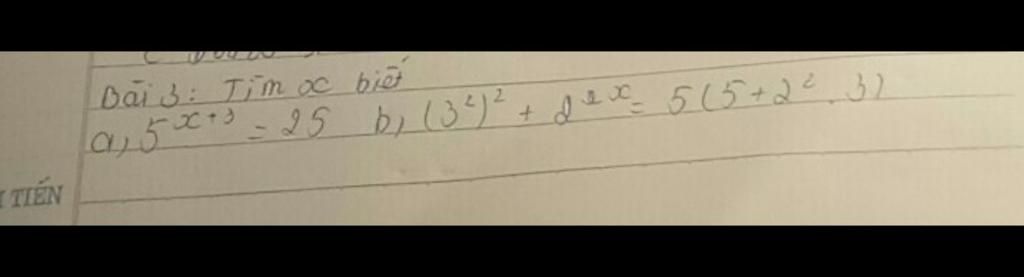 Bài 3: Tìm x biết
a, 5^{x+3} = 25 b, (3²)² + 2^{2x} = 5(5+2².3)
TIẾN